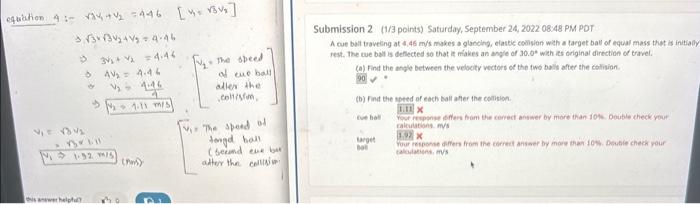 equation 4 :- √3v₁ + v₂ = 4.46 [v₁ = √3v₂]
⇒ √3×√3v₂ + v₂ = 4.46
⇒ 3v₂ + v₂ = 4.46
⇒ 4v₂ = 4.46
⇒ v₂ = 4.46
4
⇒ v₂ = 1.11 m/s
v₂ = The speed
of cue ball
after the
collision.
v₁ = √3v₂
= √3 × 1.11
v₁ ⇒ 1.92 m/s (Ans)
v₁ = The speed of
target ball
(second cue ball
after the collision.
this answer helpful?
Submission 2 (1/3 points) Saturday, September 24, 2022 08:48 PM PDT
A cue ball traveling at 4.46 m/s makes a glancing, elastic collision with a target ball of equal mass that is initially
rest. The cue ball is deflected so that it makes an angle of 30.0° with its original direction of travel.
(a) Find the angle between the velocity vectors of the two balls after the collision.
90 ✔ °
(b) Find the speed of each ball after the collision.
cue ball 1.11 ✘
Your response differs from the correct answer by more than 10%. Double check your
calculations. m/s
target
ball
1.92 ✘
Your response differs from the correct answer by more than 10%. Double check your
calculations. m/s